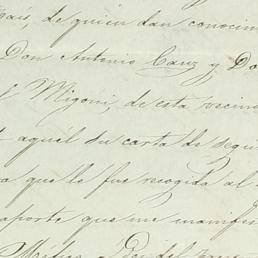 país, de quien dan conocim
Don Antonio Cauz y Do
l Migoni, de esta vecind
aquel su carta de segu
a que le fue recogida al
aporte que me manifes
México, a Dos del